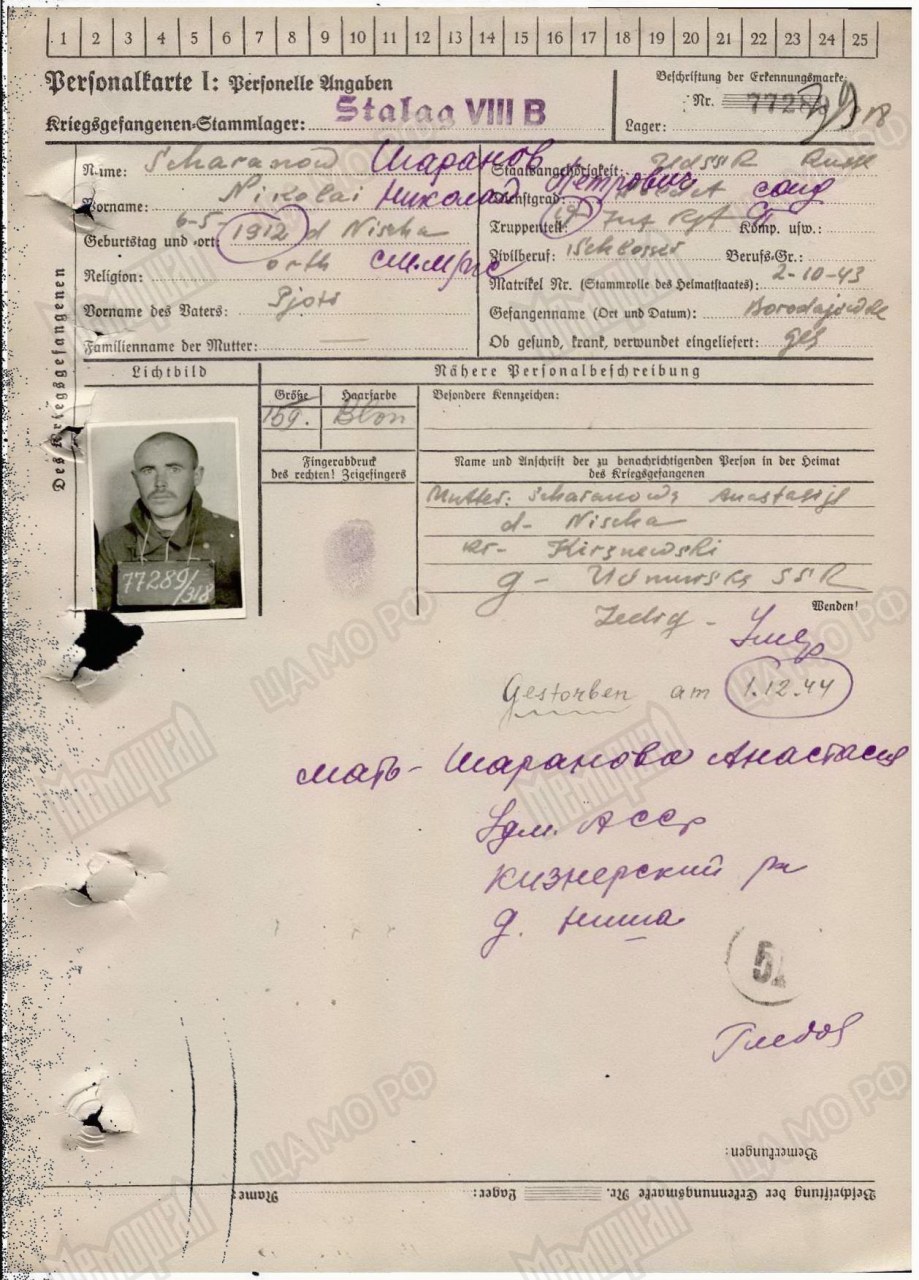 1 2 3 4 5 6 7 8 9 10 11 12 13 14 15 16 17 18 19 20 21 22 23 24 25
Personalkarte I: Personelle Angaben
Beschriftung der Erkennungsmarke
Kriegsgefangenen-Stammlager: Stalag VIII B
Nr. 77289
Lager:
Des Kriegsgefangenen
Name: Scharanow Шаранов
Vorname: Nikolai Николай Петрович
Geburtstag und -ort: 6-5-1912 d Nischa
Religion: orth
Vorname des Vaters: Pjotr
Familienname der Mutter: —
Staatsangehörigkeit: UdSSR Russ
Dienstgrad: Soldat солд
Truppenteil: Inf Rgt Komp. usw.:
Zivilberuf: Schlosser Berufs-Gr.:
Matrikel Nr. (Stammrolle des Heimatstaates): 2-10-43
Gefangenname (Ort und Datum): Borodajowka
Ob gesund, krank, verwundet eingeliefert: ges
Lichtbild
Nähere Personalbeschreibung
Größe Haarfarbe Besondere Kennzeichen:
159. Blon
Fingerabdruck
des rechten! Zeigefingers
Name und Anschrift der zu benachrichtigenden Person in der Heimat
des Kriegsgefangenen
Mutter: Scharanowa Anastasija
d- Nischa
Kirsnewski
g- Udmursk SSR
Wenden!
77289/318
Ledig - Умер
Gestorben am 1.12.44
мать - Шаранова Анастасия
Удм. АССР
Кизнерский рн
д. Ниша
52
Глебов
Bemerkungen:
Beschriftung der Erkennungsmarke Nr. Lager: Name:
Мемориал
ЦА МО РФ